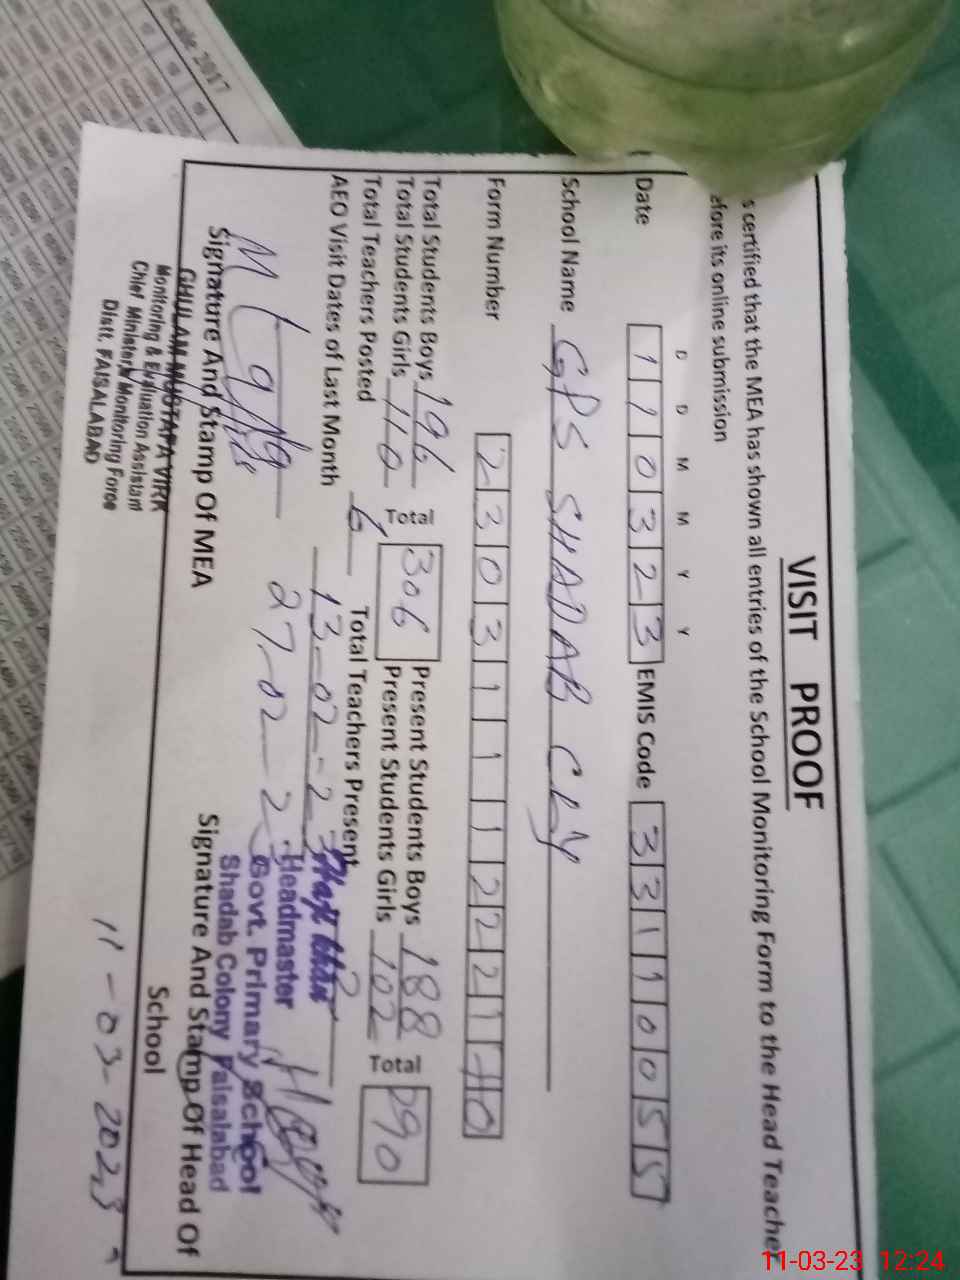 VISIT PROOF
s certified that the MEA has shown all entries of the School Monitoring Form to the Head Teacher
efore its online submission
D D M M Y Y
Date 1 1 0 3 2 3 EMIS Code 3 3 1 1 0 0 5 5
School Name GPS SHADAB CLY
Form Number 2 3 0 3 1 1 1 1 2 2 2 1 10
Total Students Boys 196 Total 306 Present Students Boys 188 Total 290
Total Students Girls 110 Present Students Girls 102
Total Teachers Posted 6 Total Teachers Present
AEO Visit Dates of Last Month 13-02-23
27-02-23
Signature And Stamp Of MEA
GHULAM MUSTAFA VIRK
Monitoring & Evaluation Assistant
Chief Minister's Monitoring Force
Distt. FAISALABAD
Headmaster
Govt. Primary School
Shadab Colony Faisalabad
Signature And Stamp Of Head Of
School
11-03-2023
Scale 2017
11-03-23 12:24